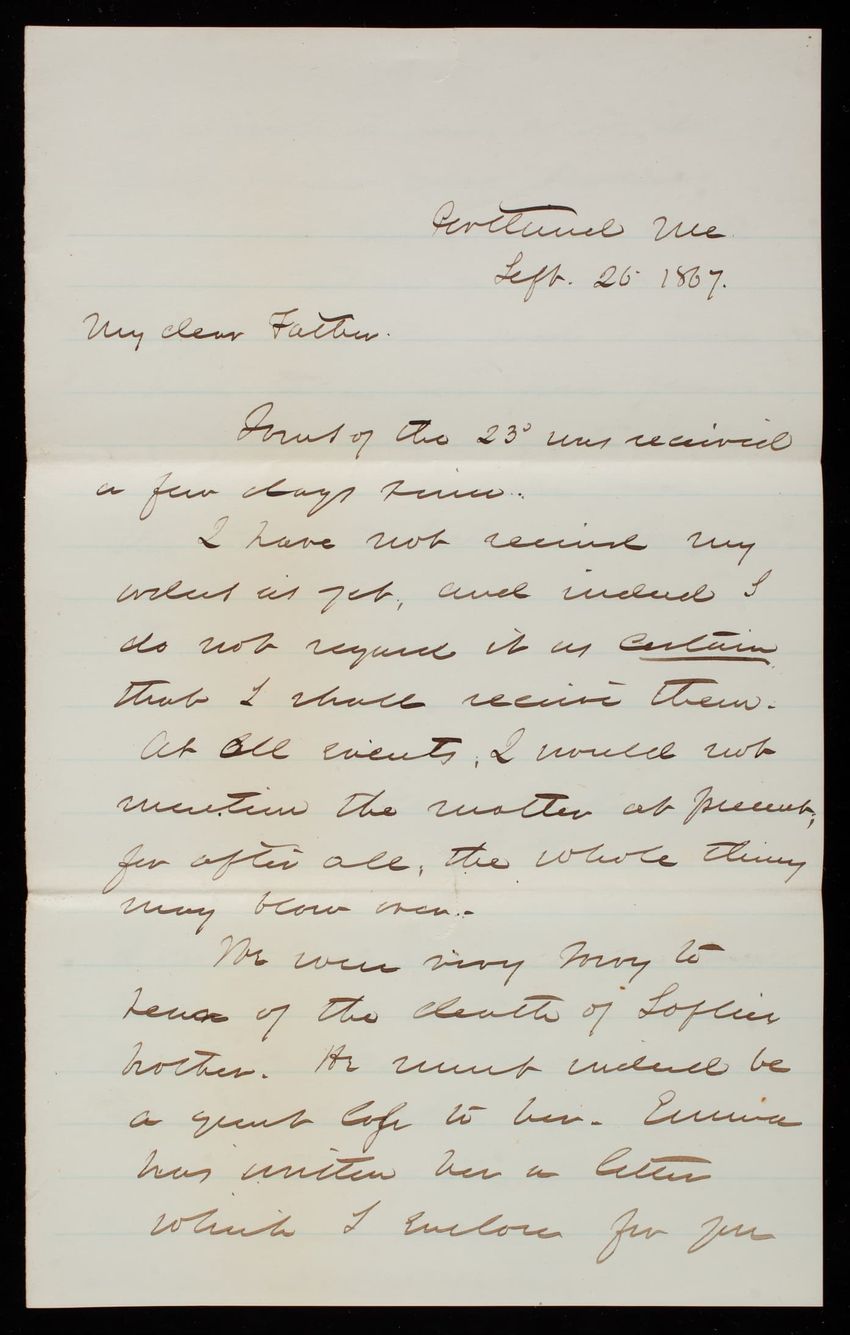 Portland Me.
Sept. 26 1867.
My dear Father.
Yours of the 23d was received
a few days since.
I have not received my
orders as yet, and indeed I
do not regard it as certain
that I shall receive them.
At all events, I would not
mention the matter at present,
for after all, the whole thing
may blow over.
We were very sorry to
hear of the death of Sophies
brother. He must indeed be
a great loss to her. Emma
has written her a letter
which I enclose for you